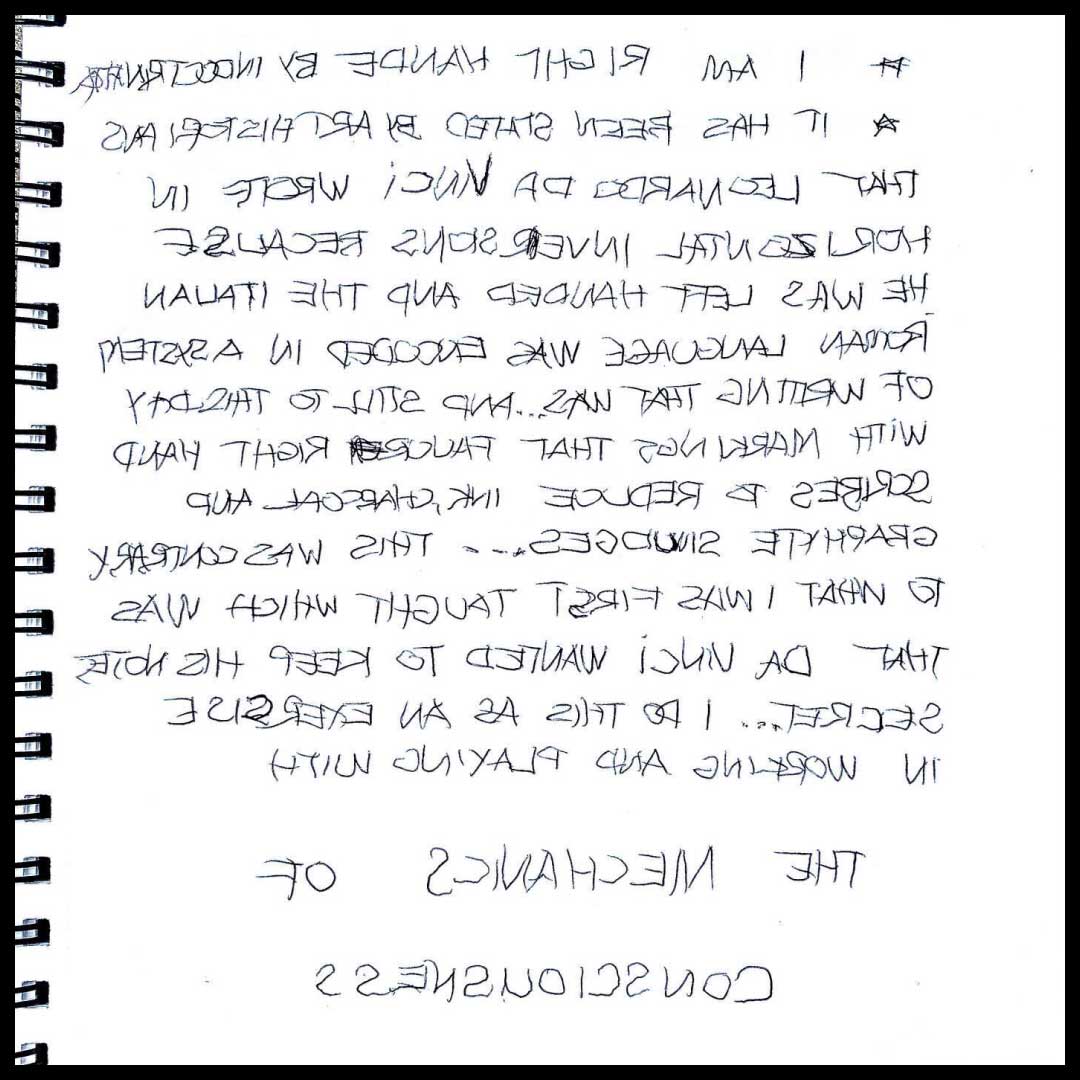 * I AM RIGHT HANDE BY INDOCTRINATION
* IT HAS BEEN STATED BY ART HISTORIANS
THAT LEONARDO DA VINCI WROTE IN
HORIZONTAL INVERSIONS BECAUSE
HE WAS LEFT HANDED AND THE ITALIAN
ROMAN LANGUAGE WAS ENCODED IN A SYSTEM
OF WRITING THAT WAS...AND STILL TO THIS DAY
WITH MARKINGS THAT FAVORE RIGHT HAND
SCRIBES TO REDUCE INK, CHARCOAL AND
GRAPHYTE SMUDGES.... THIS WAS CONTRARY
TO WHAT I WAS FIRST TAUGHT WHICH WAS
THAT DA VINCI WANTED TO KEEP HIS NOTE
SECRET... I DO THIS AS AN EXERSISE
IN WORKING AND PLAYING WITH
THE MECHANICS OF
CONSCIOUSNESS